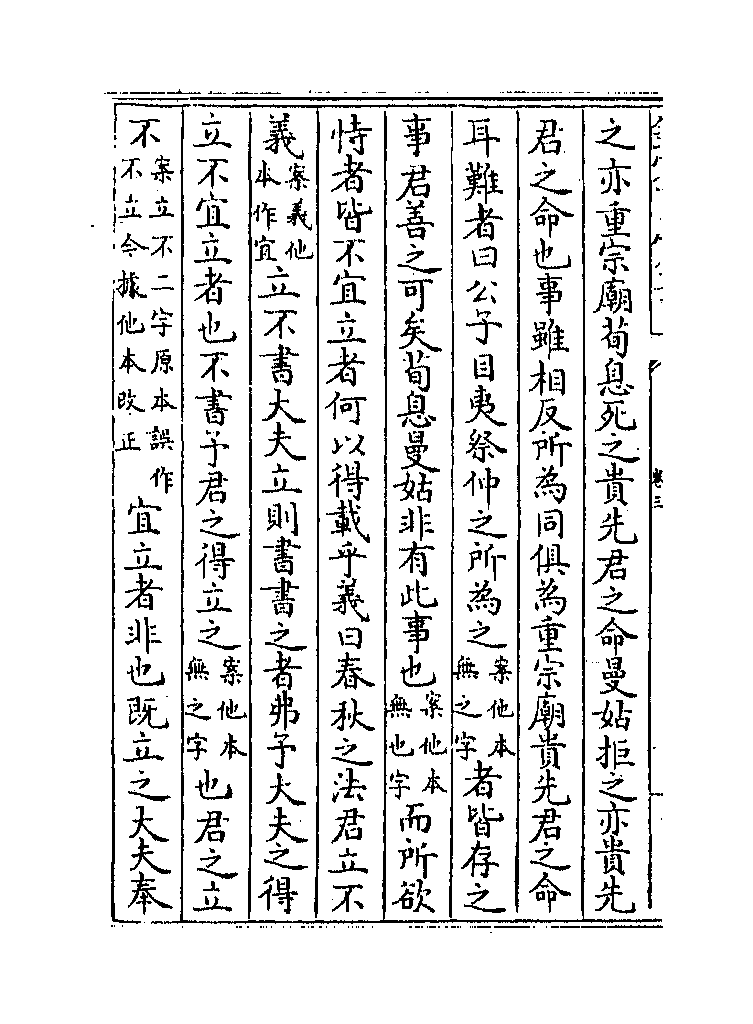 卷三
之亦重宗廟荀息死之貴先君之命曼姑拒之亦貴先
君之命也事雖相反所為同俱為重宗廟貴先君之命
耳難者曰公子目夷祭仲之所為之案他本無之字者皆存之
事君善之可矣荀息曼姑非有此事也案他本無也字而所欲
恃者皆不宜立者何以得載乎義曰春秋之法君立不
義案義他本作宜立不書大夫立則書書之者弗予大夫之得
立不宜立者也不書予君之得立之案他本無之字也君之立
不案立不二字原本誤作不立今據他本改正宜立者非也既立之大夫奉